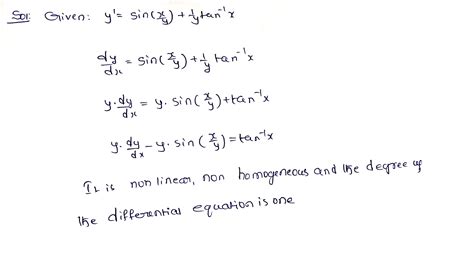 Sol: Given: y' = sin(x/y) + 1/y tan⁻¹x
dy/dx = sin(x/y) + 1/y tan⁻¹x
y·dy/dx = y·sin(x/y) + tan⁻¹x
y·dy/dx - y·sin(x/y) = tan⁻¹x
It is non linear, non homogeneous and the degree of
the differential equation is one